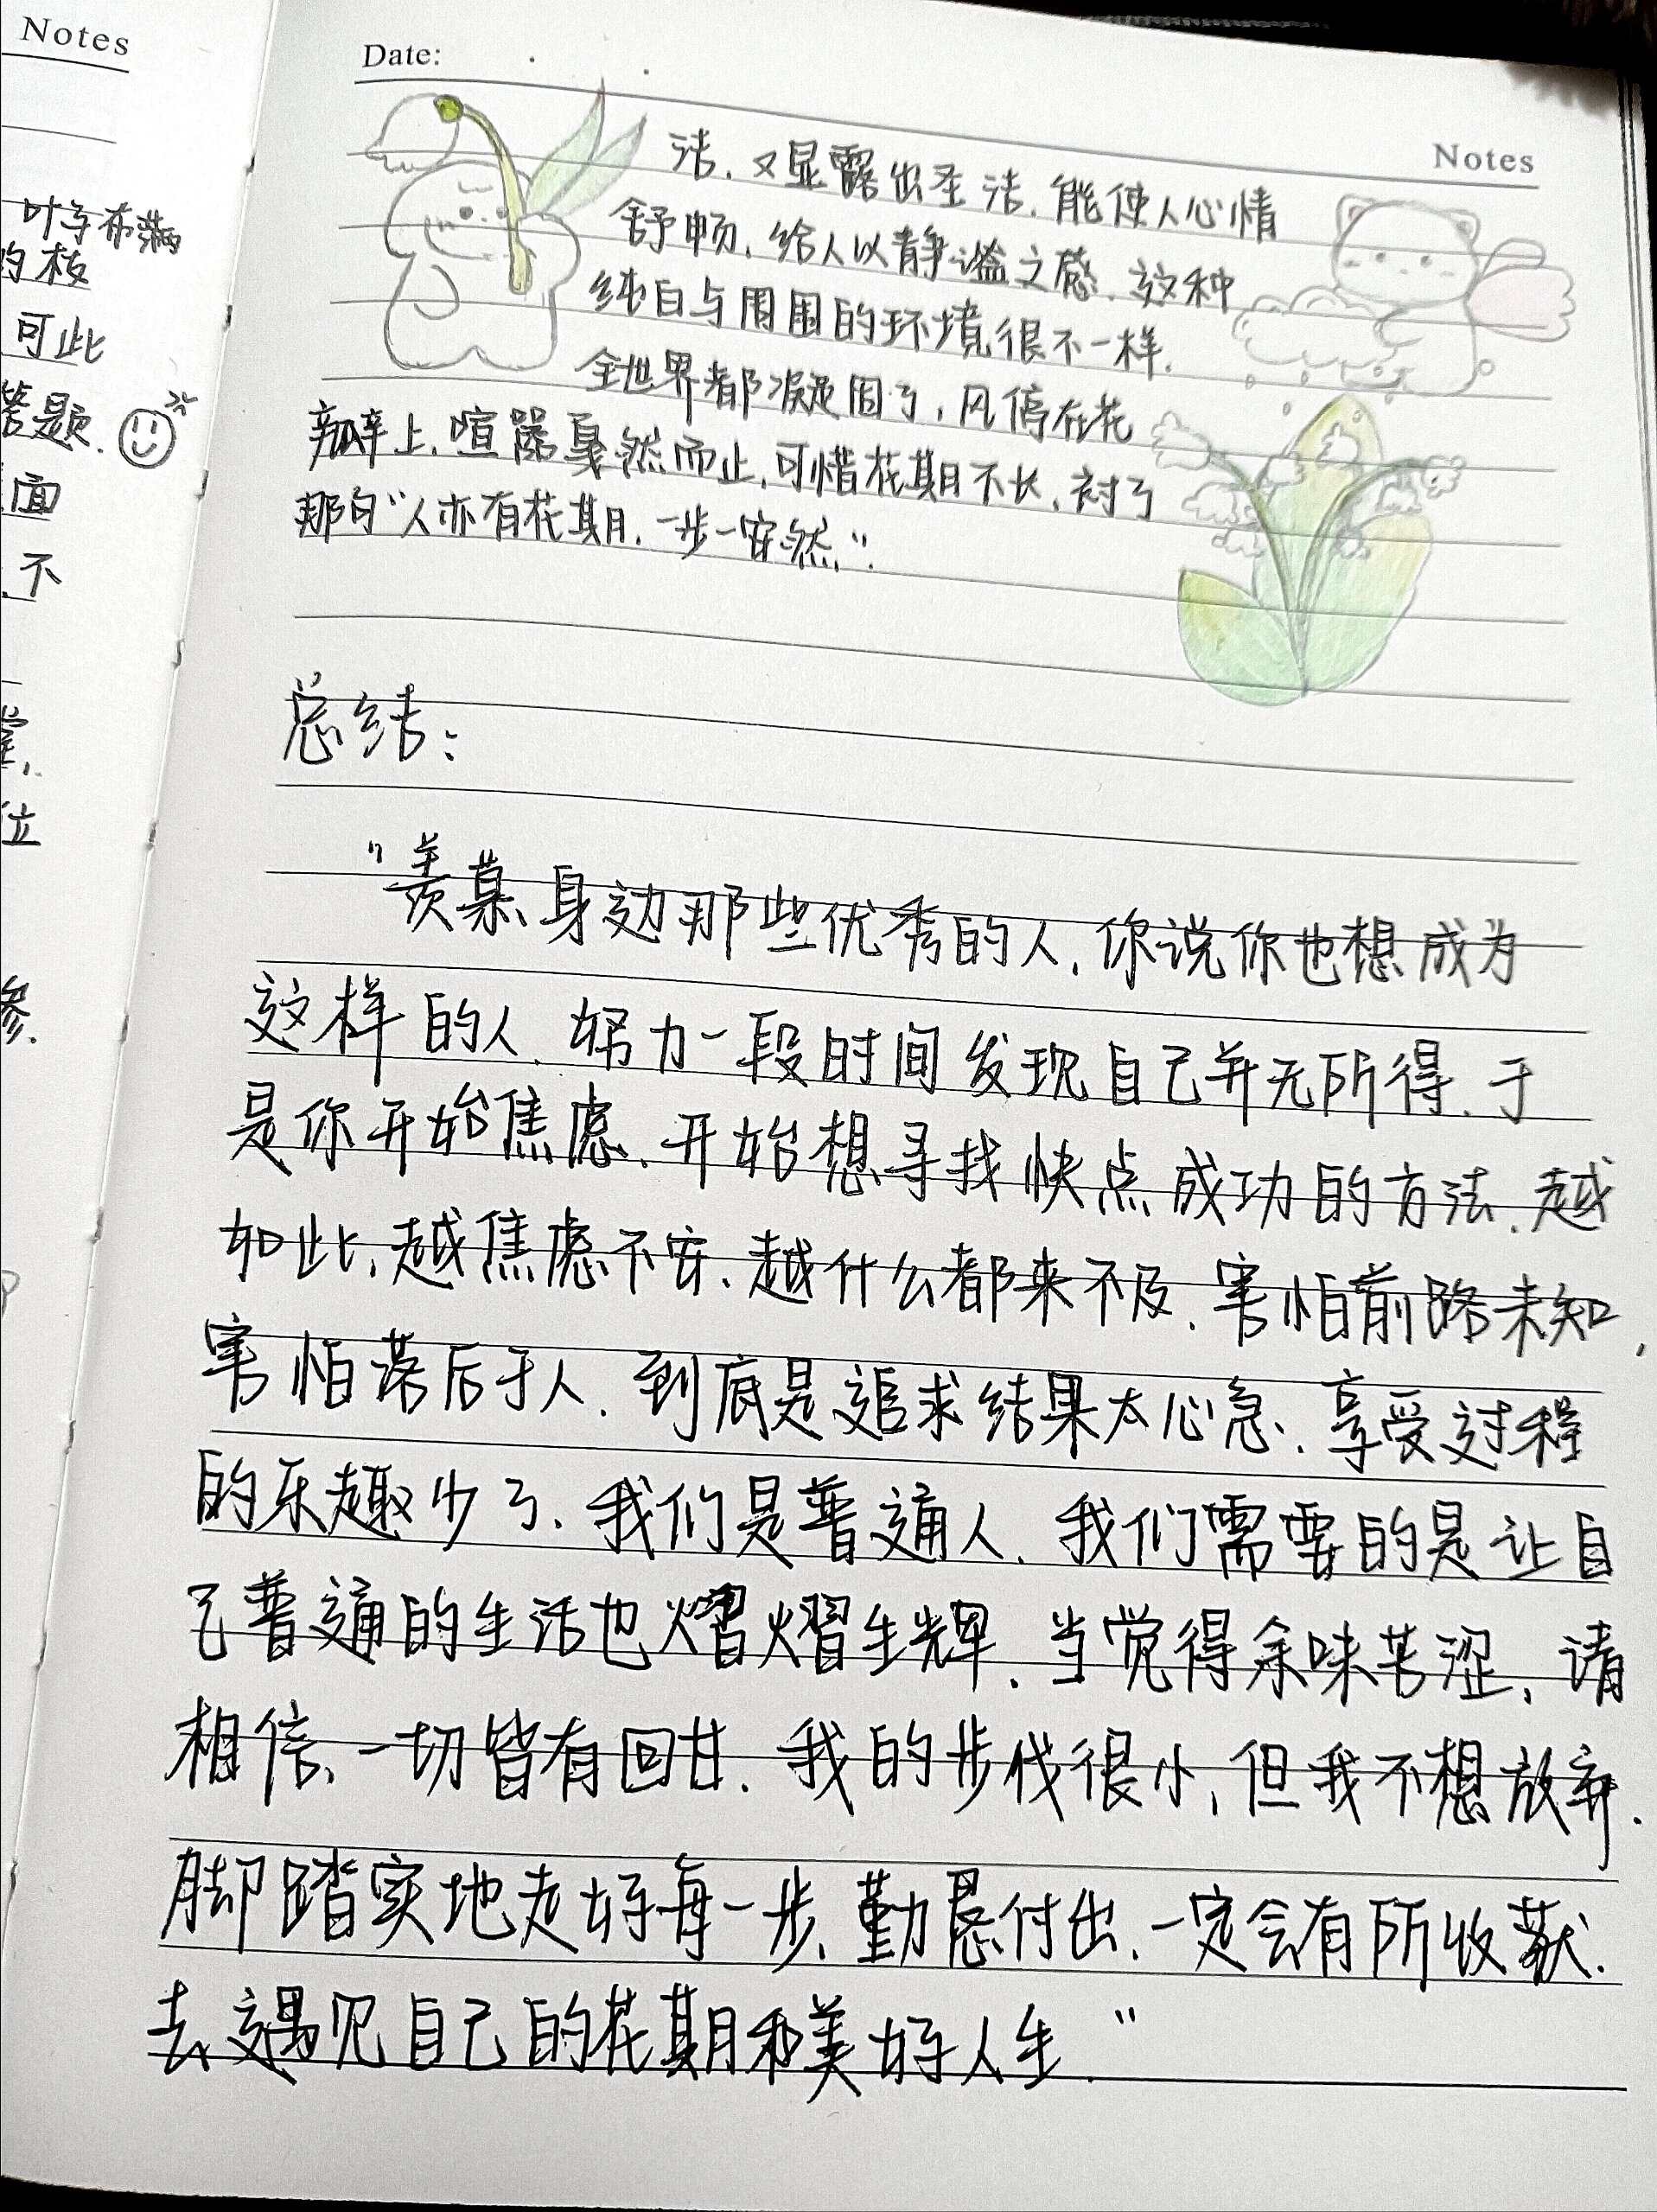 Notes
叶子布满
的枝
可此
答题.
面
不
位
参.
Date:
Notes
洁.又显露出圣洁.能使人心情
舒畅.给人以静谧之感.这种
纯白与周围的环境很不一样.
全世界都凝固了,风停在花
瓣上.喧嚣戛然而止.可惜花期不长.衬了
那句“人亦有花期.一步一安然”.
总结:
“羡慕身边那些优秀的人.你说你也想成为
这样的人.努力一段时间发现自己并无所得.于
是你开始焦虑.开始想寻找快点成功的方法.越
如此,越焦虑不安.越什么都来不及.害怕前路未知,
害怕落后于人.到底是追求结果太心急.享受过程
的乐趣少了.我们是普通人.我们需要的是让自
己普通的生活也熠熠生辉.当觉得余味苦涩,请
相信,一切皆有回甘.我的步伐很小,但我不想放弃.
脚踏实地走好每一步.勤恳付出.一定会有所收获.
去遇见自己的花期和美好人生.”